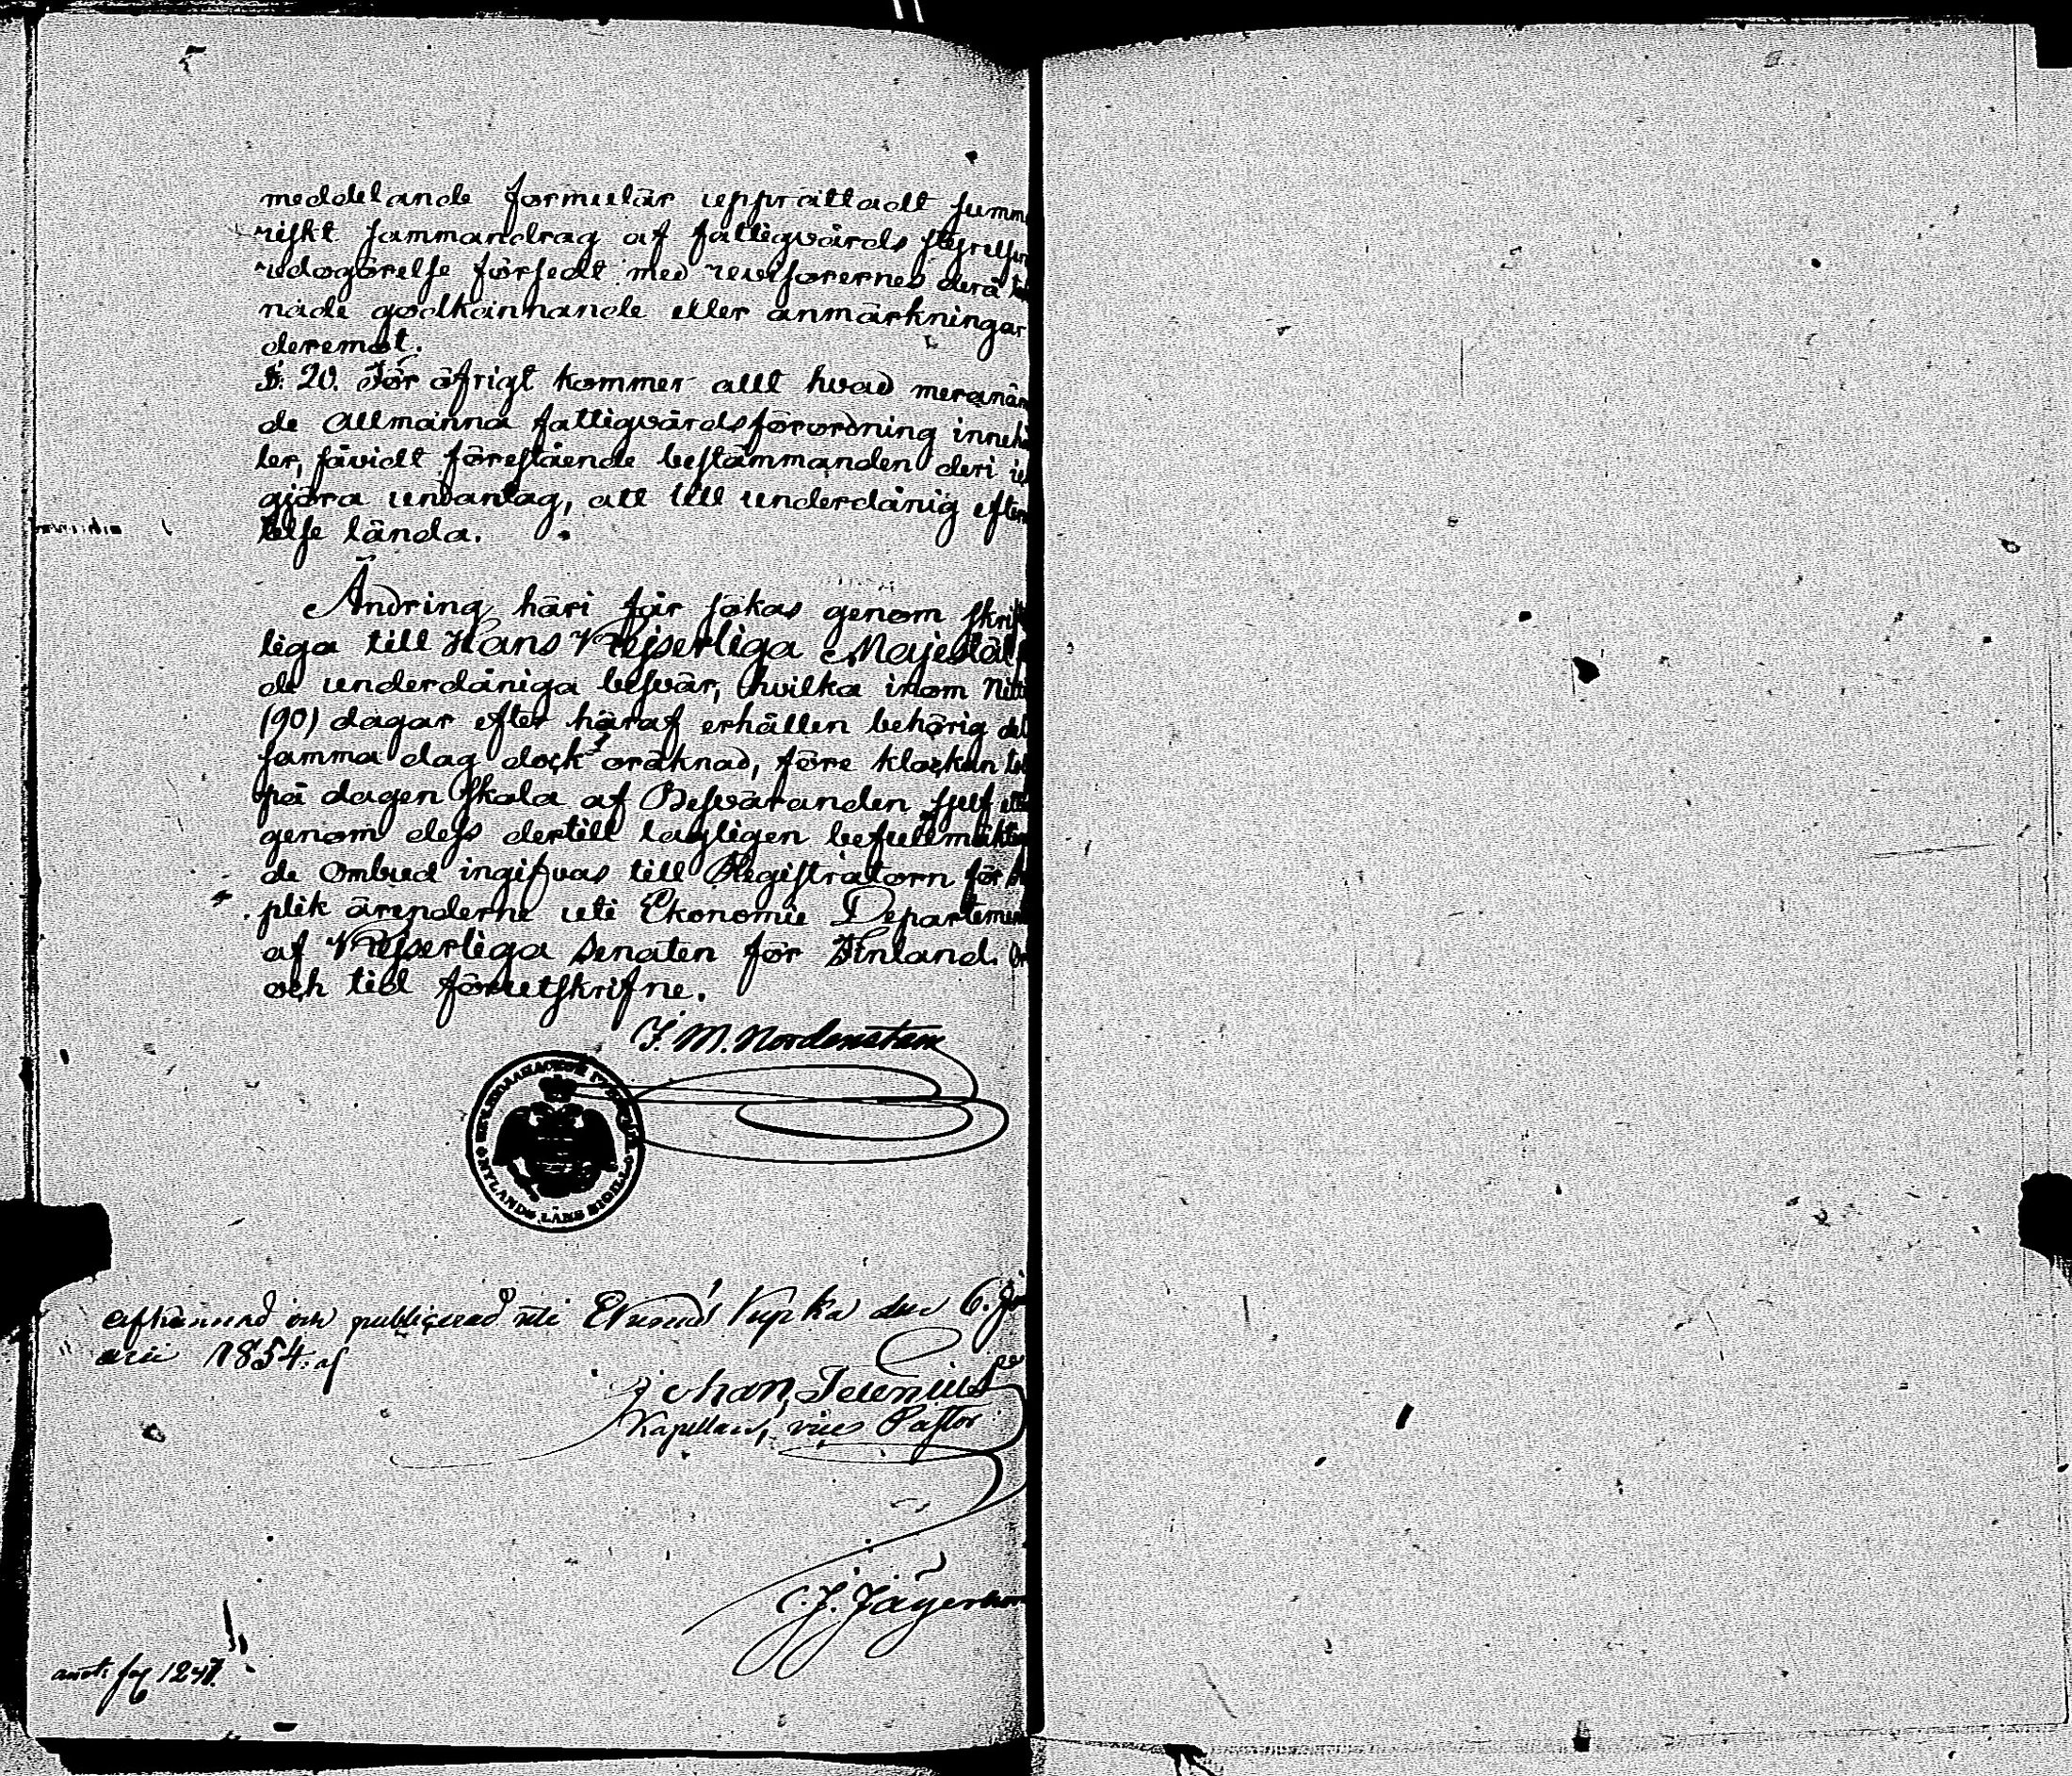 meddelande formulär upprättadt summ
riskt sammandrag af fattigvårds styrelsen
redogörelse försedt med revisorernes derå
nade godkännande eller anmärkningar
deremot.
§. 20. För öfrigt kommer allt hvad meranäm
de Allmänna fattigvårdsförordning innehå
ler, såvidt förestående bestämmanden deri ic
gjöra undantag, att till underdånig efter
telse lända.
Ändring häri får sökas genom skrift
liga till Hans Kejserliga Majestät
de underdåniga besvär, hvilka inom Nitti
(90) dagar efter häraf erhållen behörig del
samma dag dock oräknad, före klockan tol
på dagen skola af Besväranden sjelf ell
genom dess dertill lagligen befullmäktig
de Ombud ingifvas till Registratorn för
plik ärenderne uti Ekonomie Departement
af Kejserliga Senaten för Finland. Or
och tid förutskrifne.
J. M. Nordenstam
NYLANDS LÄNS SIGILL
och publicerad uti Kyrka den 6. Jan
arii 1854. af
Johan
Kapellan, vice Pastor
C. J. Jägerhorn
ant. pag 1247.